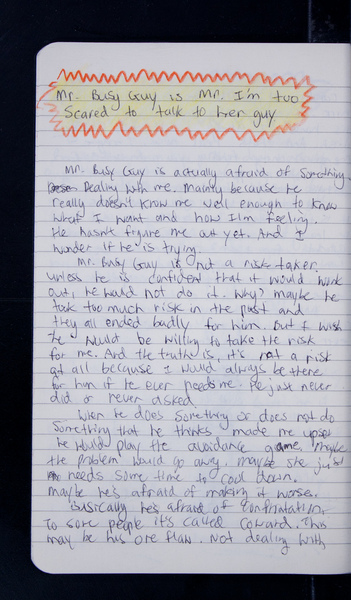 Mr. Busy Guy is Mr. I'm too
Scared to talk to her guy
Mr. Busy Guy is actually afraid of something
Dealing with me. Mainly because he
really doesn't know me well enough to know
what I want and how I'm feeling.
He hasn't figure me out yet. And I
wonder if he is trying.
Mr. Busy Guy is not a risk taker.
unless he is confident that it would work
out, he would not do it. Why? maybe he
took too much risk in the past and
they all ended badly for him. But I wish
he would be willing to take the risk
for me. And the truth is, it's not a risk
at all because I would always be there
for him if he ever needs me. He just never
did or never asked
When he does something or does not do
something that he thinks made me upset
he would play the avoidance game, maybe
the problem would go away. maybe she just
needs some time to cool down.
maybe he's afraid of making it worse.
Basically he's afraid of confrontation.
To some people it's called coward. This
may be his one flaw. Not dealing with